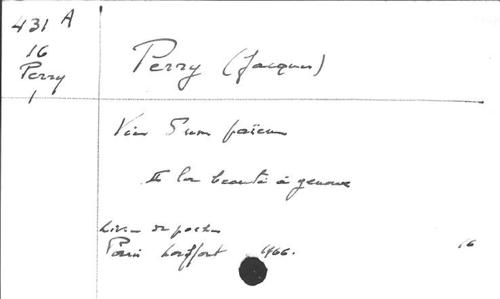 431 A
16
Perry
1
Perry (Jacques)
Vie d'un païen
II la beauté à genoux
Livre de poche
Paris 1966.
16